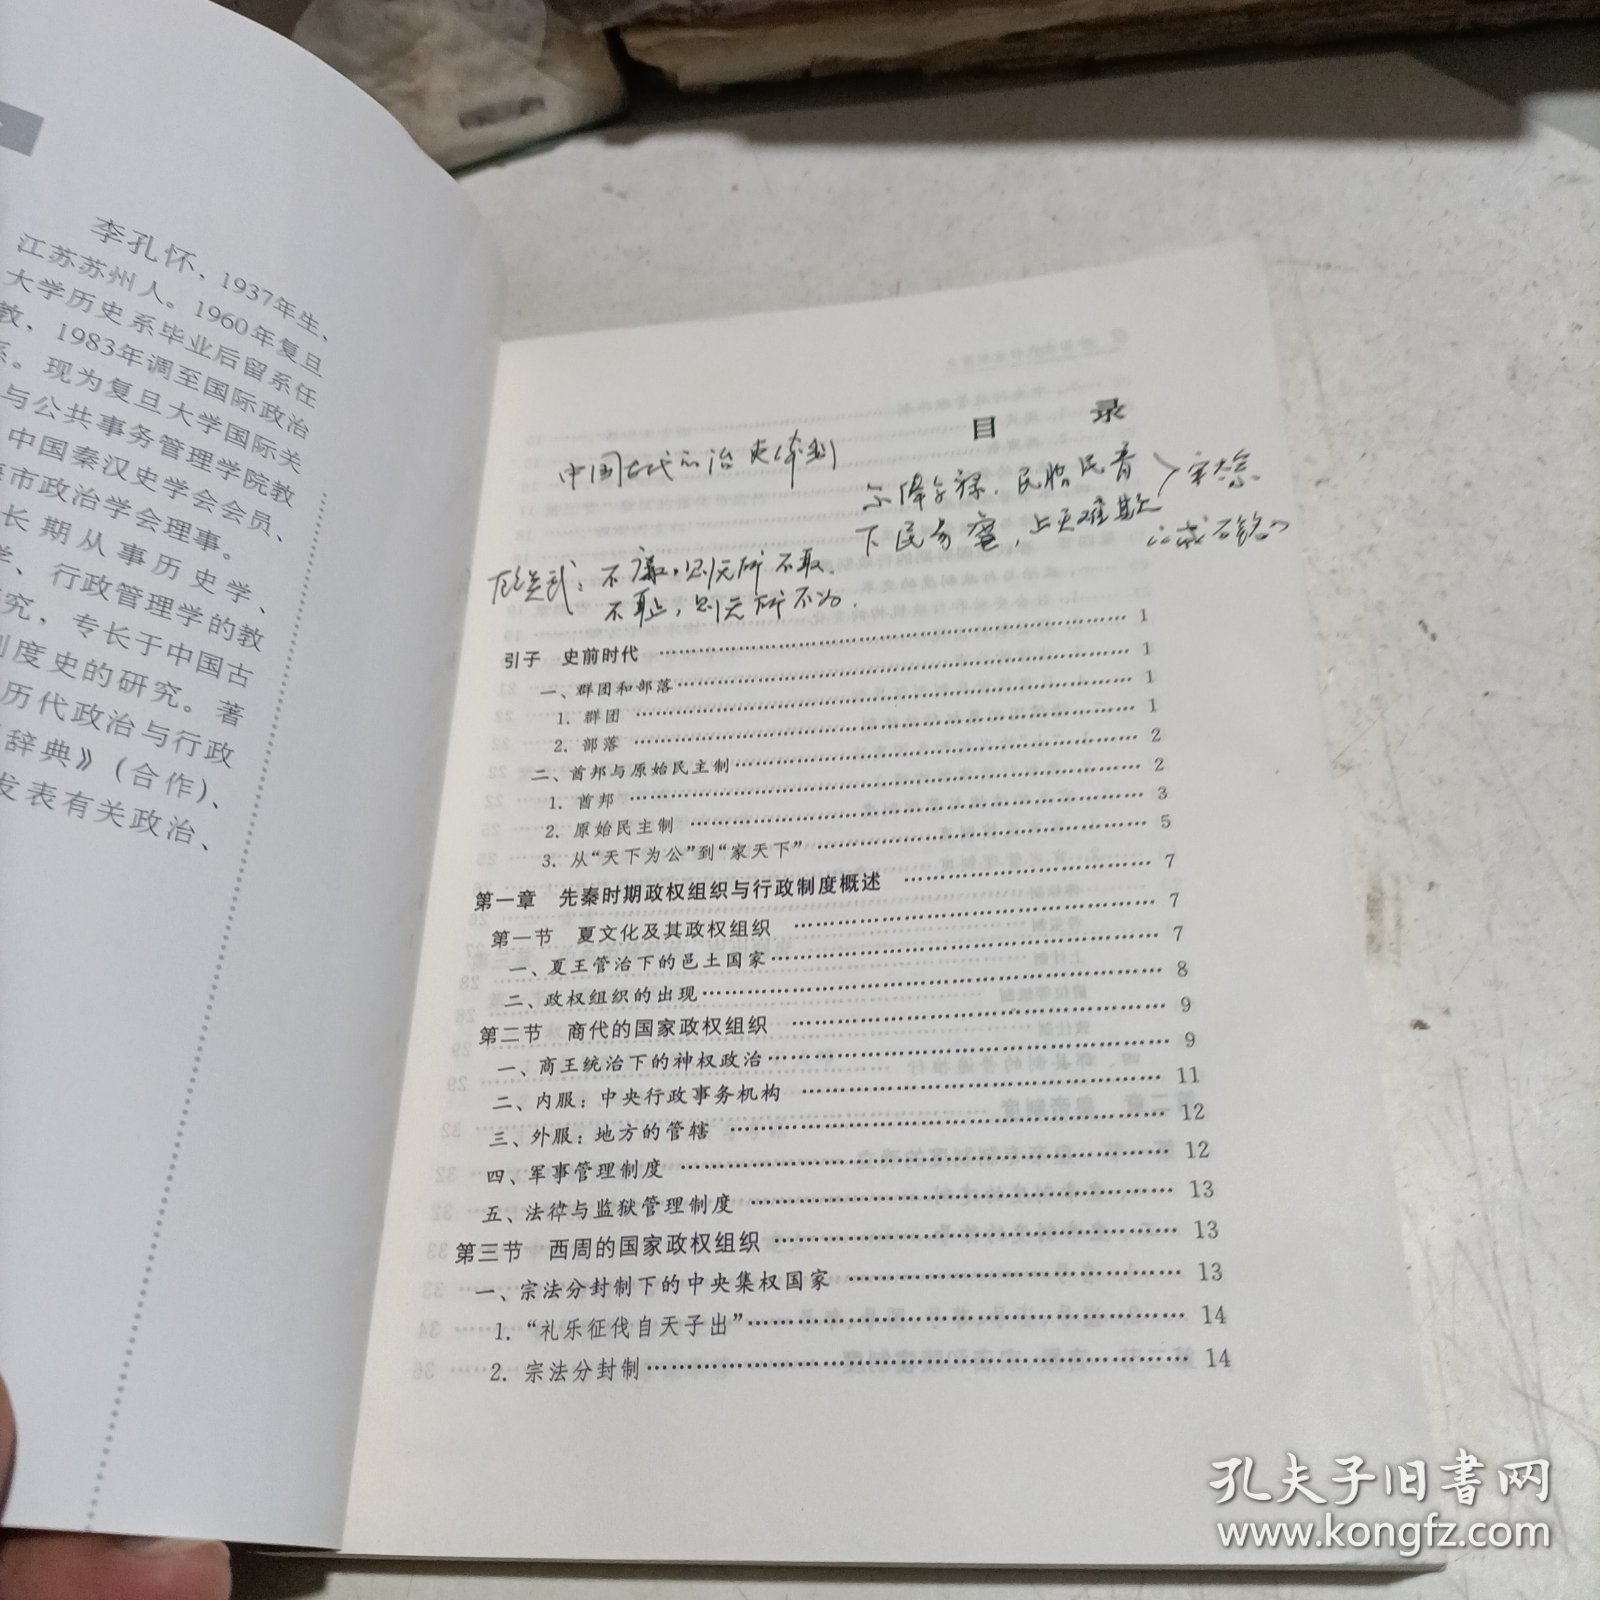 李孔怀，1937年生，
江苏苏州人。1960年复旦
大学历史系毕业后留系任
教，1983年调至国际政治
系。现为复旦大学国际关
与公共事务管理学院教
中国秦汉史学会会员、
市政治学会理事。
长期从事历史学、
学、行政管理学的教
研究，专长于中国古
制度史的研究。著
历代政治与行政
辞典》（合作）、
发表有关政治、
目 录
中国古代政治
尔俸尔禄，民脂民膏
下民易虐，上天难欺
不廉，则无所不取，
不耻，则无所不为．
引子 史前时代 …… 1
一、群团和部落 …… 1
1. 群团 …… 1
2. 部落 …… 1
二、酋邦与原始民主制 …… 2
1. 酋邦 …… 2
2. 原始民主制 …… 3
3. 从“天下为公”到“家天下” …… 5
第一章 先秦时期政权组织与行政制度概述 …… 7
第一节 夏文化及其政权组织 …… 7
一、夏王管治下的邑土国家 …… 7
二、政权组织的出现 …… 8
第二节 商代的国家政权组织 …… 9
一、商王统治下的神权政治 …… 9
二、内服：中央行政事务机构 …… 11
三、外服：地方的管辖 …… 12
四、军事管理制度 …… 12
五、法律与监狱管理制度 …… 13
第三节 西周的国家政权组织 …… 13
一、宗法分封制下的中央集权国家 …… 13
1. “礼乐征伐自天子出” …… 14
2. 宗法分封制 …… 14
孔夫子旧书网
www.kongfz.com